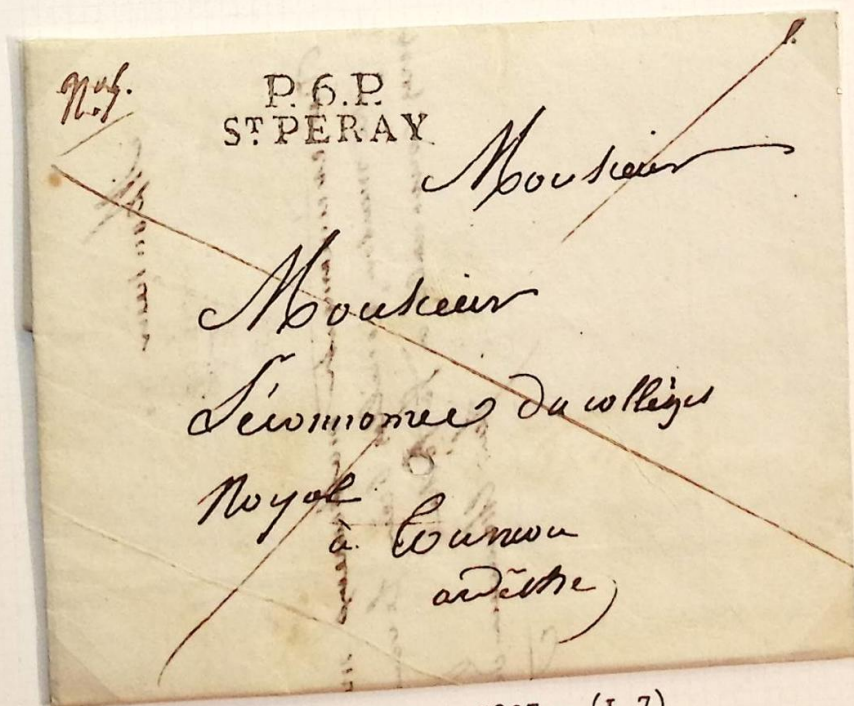 P.6.P.
ST PERAY
Monsieur
Monsieur
L'économe du collège
Royal
à Tournon
ardèche
(I 7)